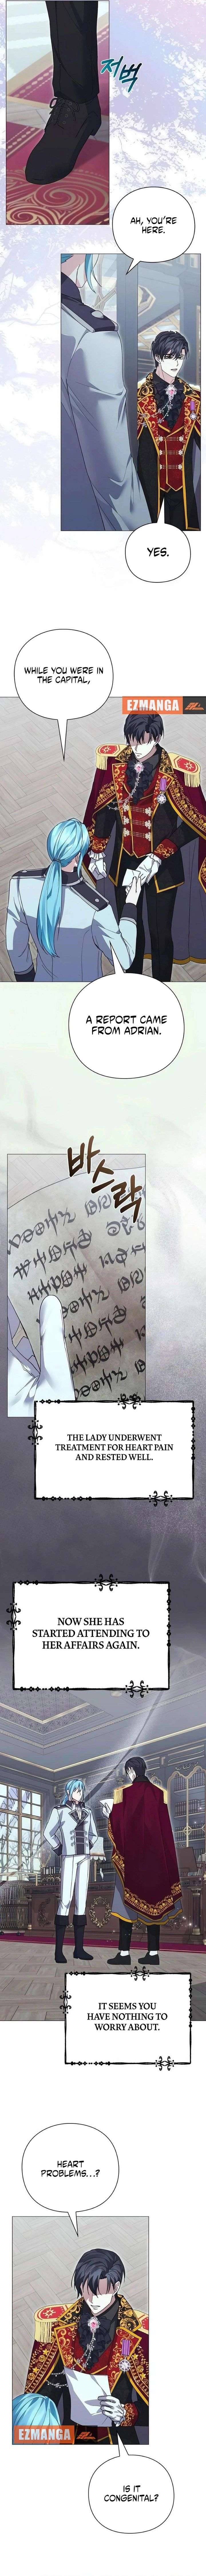 저벅
AH, YOU'RE
HERE.
YES.
WHILE YOU WERE IN
THE CAPITAL,
EZMANGA
A REPORT CAME
FROM ADRIAN.
바스락
THE LADY UNDERWENT
TREATMENT FOR HEART PAIN
AND RESTED WELL.
NOW SHE HAS
STARTED ATTENDING TO
HER AFFAIRS AGAIN.
IT SEEMS YOU
HAVE NOTHING TO
WORRY ABOUT.
HEART
PROBLEMS...?
EZMANGA
IS IT
CONGENITAL?